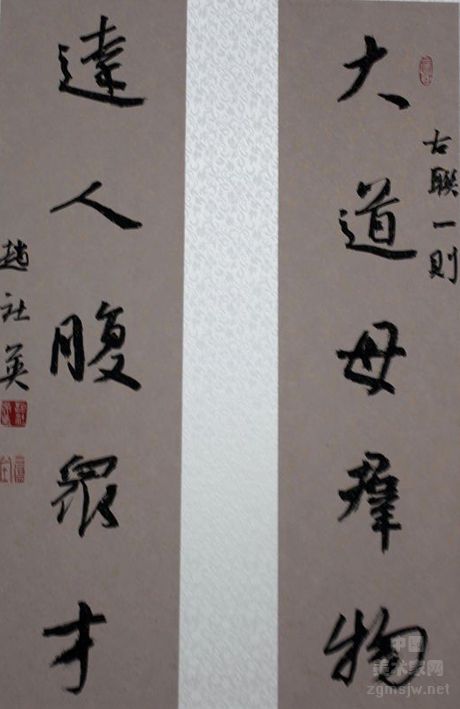 大道母群物
古联一則
達人腹眾才
趙社英
中国美术家网
zgmsjw.net